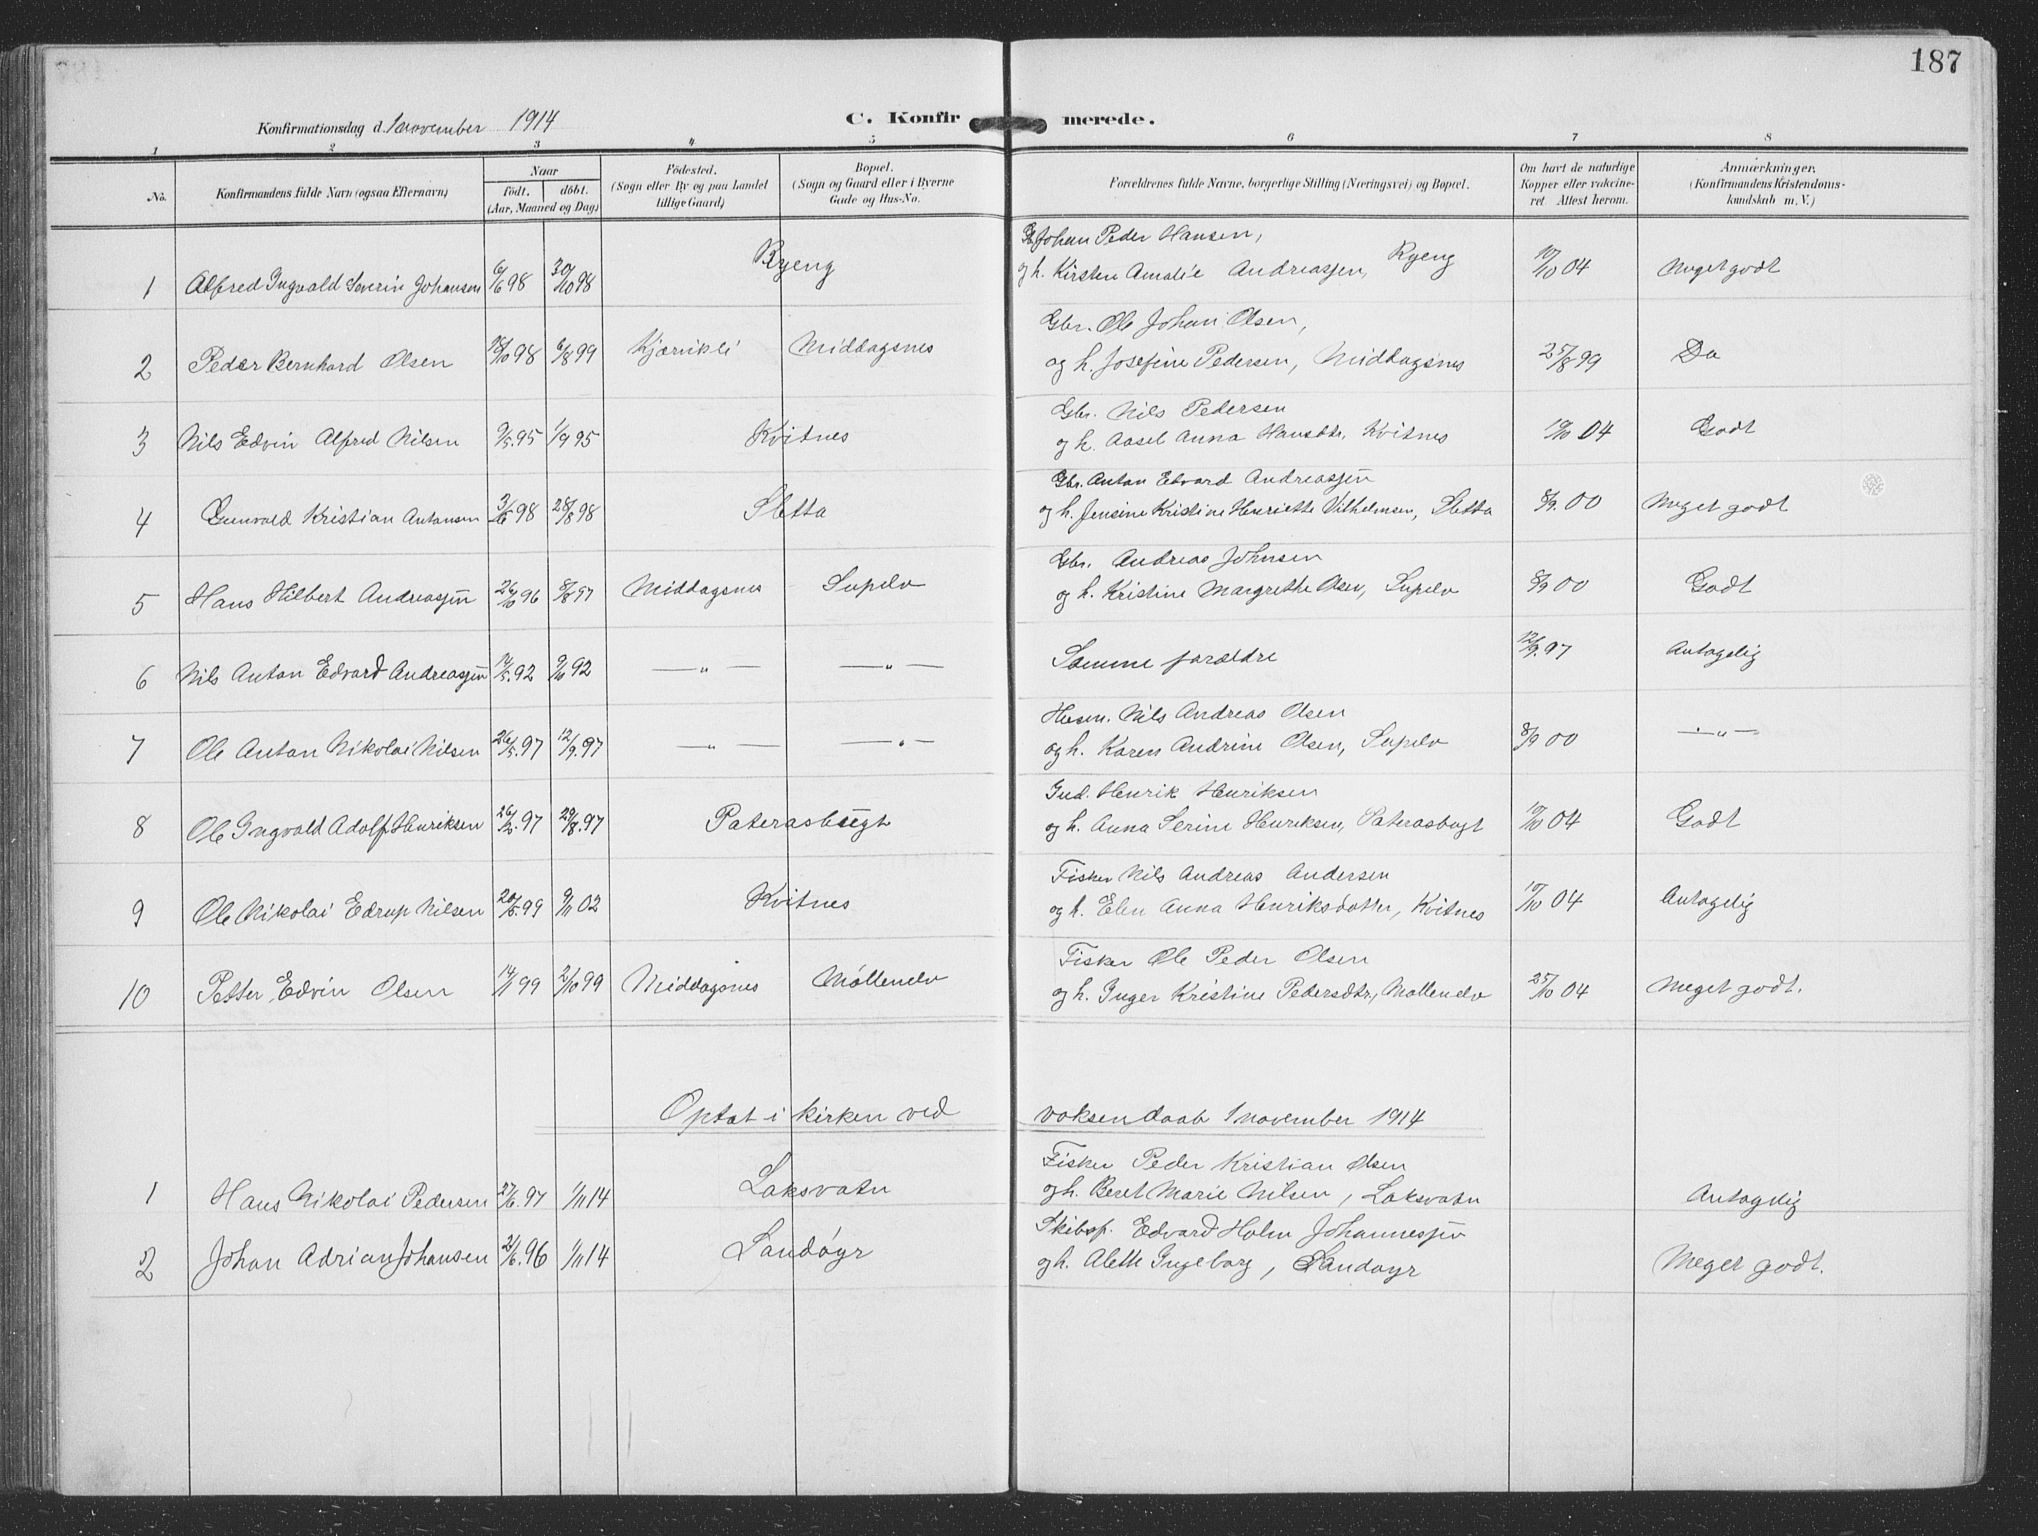 187
Konfirmationsdag d. 1 november 1914
C. Konfirmerede.
1 2 3 4 5 6 7 8
No. Konfirmandens fulde Navn (ogsaa Efternavn) Naar födt. döbt. (Aar, Maaned og Dag) Födested. (Sogn eller By og paa Landet tillige Gaard) Bopæl. (Sogn og Gaard eller i Byerne Gade og Hus-No. Forældrenes fulde Navne, borgerlige Stilling (Næringsvei) og Bopæl. Om havt de naturlige Kopper eller vakcineret. Attest herom. Anmærkninger. (Konfirmandens Kristendomskundskab m. V.)
Gb. Johan Peder Hansen,
1 Alfred Ingvald Severin Johansen 6/6 98 30/10 98 Ryeng og h. Kirsten Amalie Andreasjen, Ryeng 10/10 04 Meget godt
Gbr. Ole Johan Olsen,
2 Peder Bernhard Olsen 18/10 98 6/8 99 Kjærvikli Middagsnes og h. Josefine Pedersen, Middagsnes 25/8 99 Do
Gbr. Nils Pedersen
3 Nils Edvin Alfred Nilsen 9/5. 95 1/9 95 Kvitnes og h. Aasel Anna Hansdtr, Kvitnes 10/10 04 Godt
Gbr. Anton Edvard Andreasjen
4 Gunvald Kristian Antonsen 3/6 98 28/8 98 Sletta og h. Jensine Kristine Henriette Vilhelmsen, Sletta 8/9. 00 Meget godt
Gbr. Andreas Johnsen
5 Hans Hilbert Andreasjen 26/10 96 8/8 97 Middagsnes Sopelv og h. Kristine Margrethe Olsen, Sopelv 8/9 00 Godt
6 Nils Anton Edvard Andreasjen 14/5. 92 9/10 92 — " — — " — Samme forældre 12/9. 97 Antagelig
Husm. Nils Andreas Olsen
7 Ole Anton Nikolai Nilsen 26/5. 97 12/9. 97 — " — — " — og h. Karen Andrine Olsen, Sopelv 8/9 00 — " —
Ind. Henrik Henriksen
8 Ole Ingvald Adolf Henriksen 97 29/8. 97 Paterasbugt og h. Anna Serine Henriksen, Paterasbugt 10/10 04 Godt
Fisker Nils Andreas Andersen
9 Ole Nikolai Edrup Nilsen 20/5. 99 9/11 02 Kvitnes og h. Elen Anna Henriksdatter, Kvitnes 10/10 04 Antagelig
Fisker Ole Peder Olsen
10 Petter Edvin Olsen 14/1 99 2/10 99 Middagsnes Möllenelv og h. Inger Kristine Pedersdtr, Mollenelv 25/10 04 Meget godt.
Optat i kirken ved voksendaab 1 november 1914
Fisker Peder Kristian Olsen
1 Hans Nikolai Pedersen 27/6. 97 1/11 14 Laksvatn og h. Beret Marie Nilsen, Laksvatn Antagelig
Skibsf. Edvard Holm Johannesjen
2 Johan Adrian Johansen 21/6. 96 1/11 14 Sandöyr og h. Alette Ingeborg, Sandøyr Meget godt.